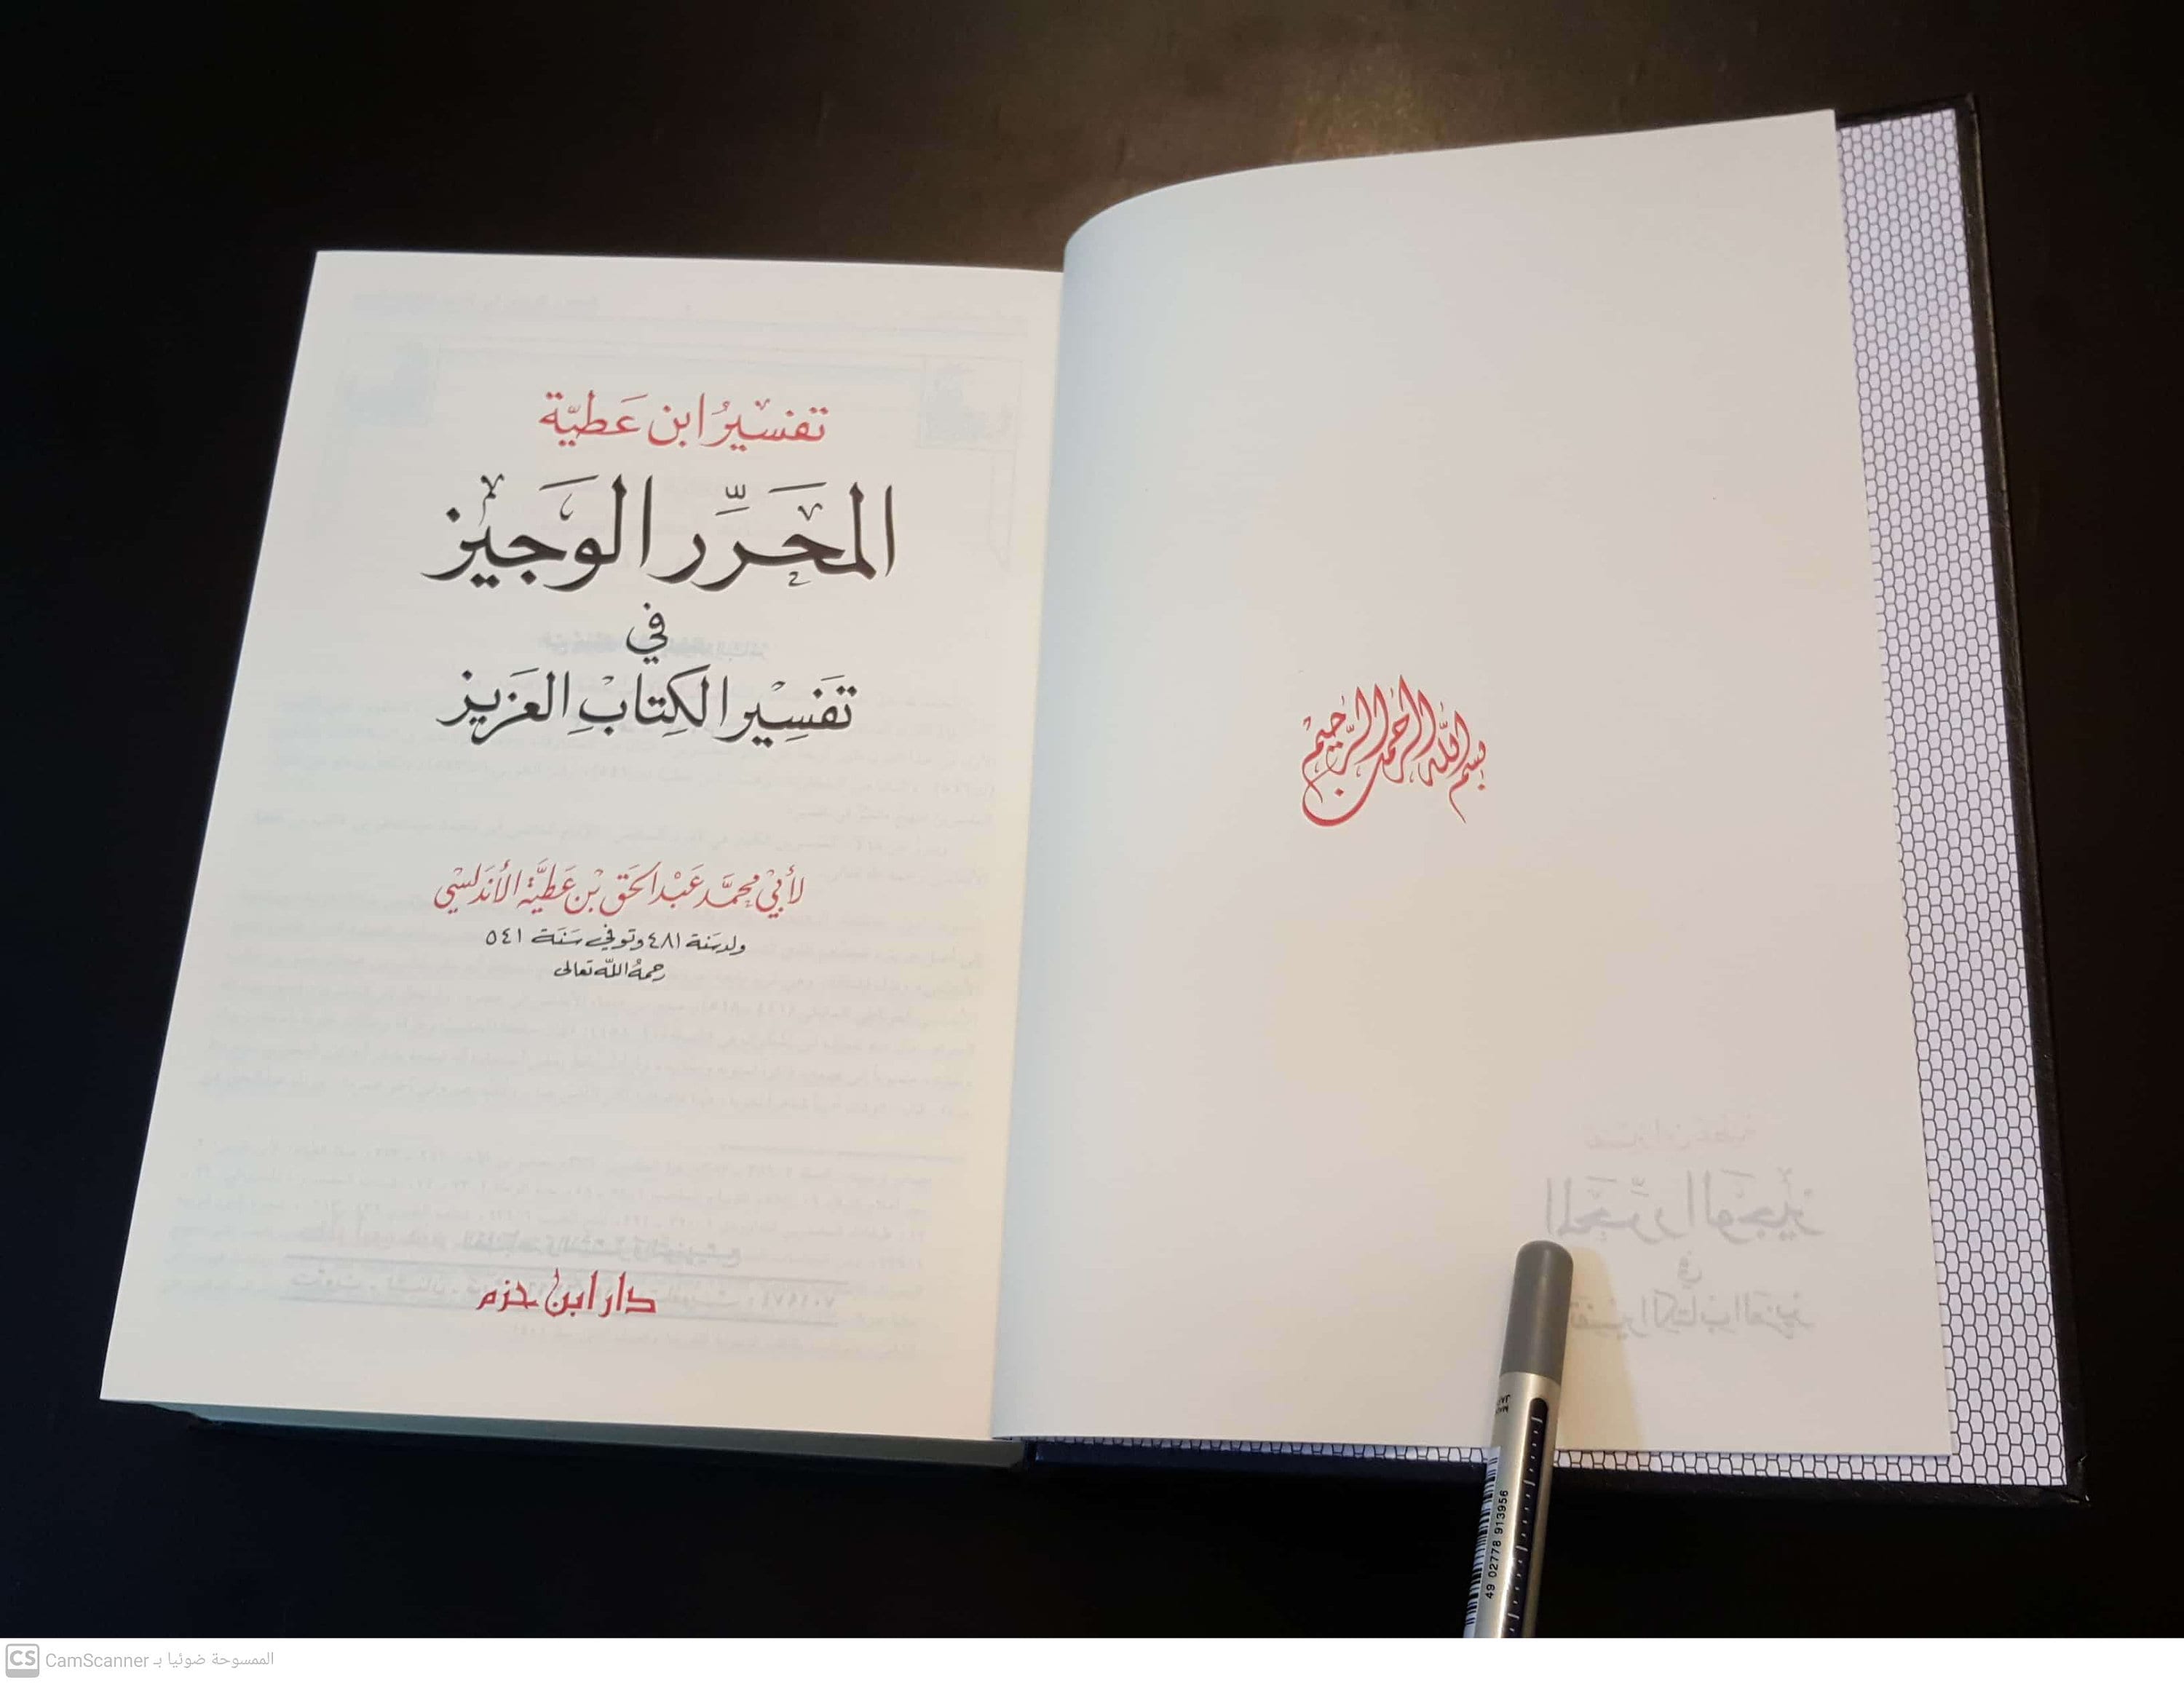 بسم الله الرحمن الرحيم
تفسير ابن عطية
المحرر الوجيز
في
تفسير الكتاب العزيز
لأبي محمد عبد الحق بن عطية الأندلسي
ولد سنة ٤٨١ وتوفي سنة ٥٤١
رحمه الله تعالى
دار ابن حزم
49 02778 913956
CS CamScanner الممسوحة ضوئيا بـ